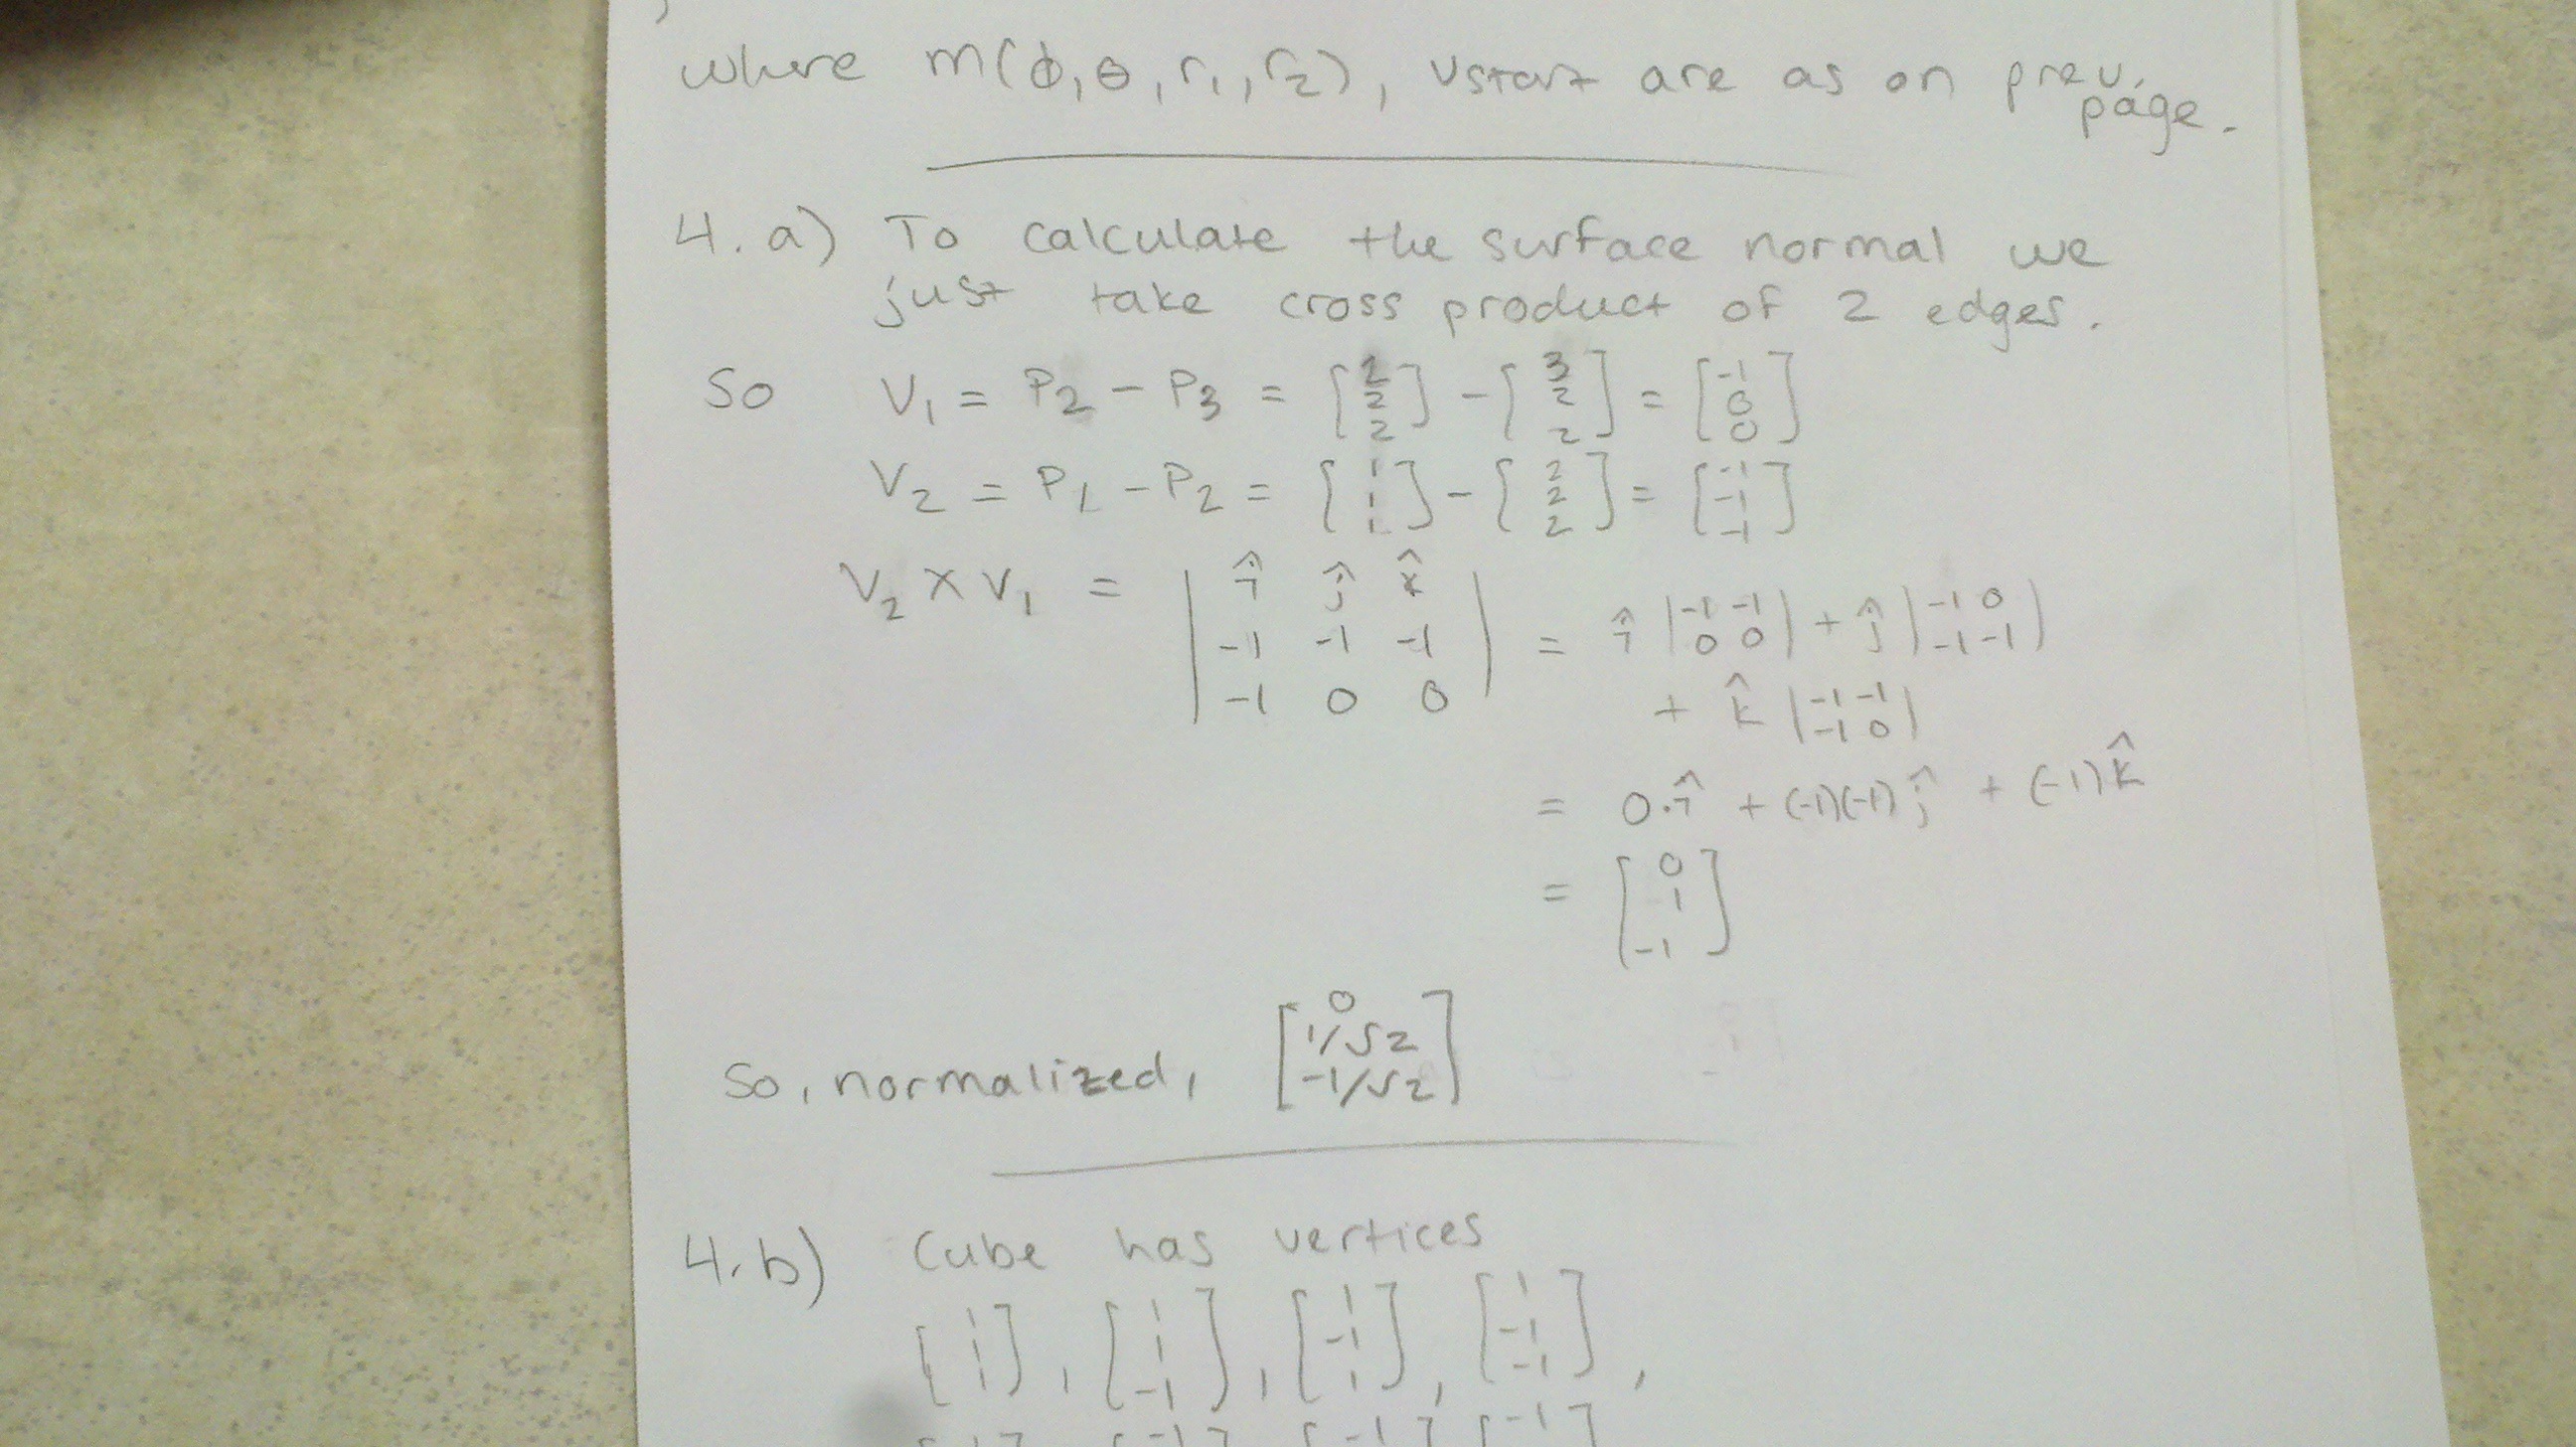 where m(ϕ, θ, r₁, r₂), vstart are as on prev. page.
4. a) To calculate the surface normal we
just take cross product of 2 edges.
So V₁ = P₂ - P₃ = [2 2 2] - [3 2 2] = [-1 0 0]
V₂ = P₁ - P₂ = [1 1 1] - [2 2 2] = [-1 -1 -1]
V₂ × V₁ = | î ĵ k̂ | = î |-1 -1| + ĵ |-1 0|
|-1 -1 -1| |0 0| |-1 -1|
|-1 0 0| + k̂ |-1 -1|
|-1 0|
= 0·î + (-1)(-1)ĵ + (-1)k̂
= [0 1 -1]
So, normalized, [0 1/√2 -1/√2]
4. b) Cube has vertices
[1 1 1], [1 1 -1], [1 -1 1], [1 -1 -1],